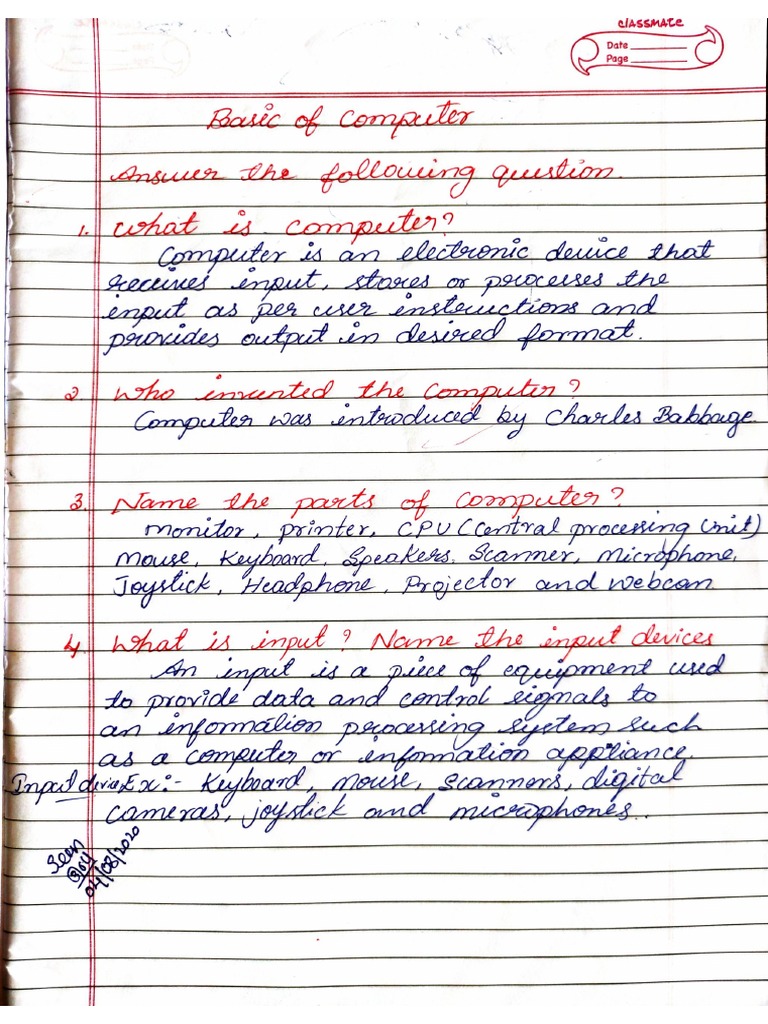 classmate
Date
Page
Basic of Computer
Answer the following question.
1. What is computer?
Computer is an electronic device that
receives input, stores or processes the
input as per user instructions and
provides output in desired format.
2. Who invented the computer?
Computer was introduced by Charles Babbage.
3. Name the parts of computer?
Monitor, printer, CPU (Central processing Unit)
Mouse, Keyboard, Speakers, Scanner, Microphone,
Joystick, Headphone, Projector and webcam
4. What is input? Name the input devices
An input is a piece of equipment used
to provide data and control signals to
an information processing system such
as a computer or information appliance.
Input device Ex:- Keyboard, mouse, scannors, digital
cameras, joystick and microphones..
Seen
04/08/2020